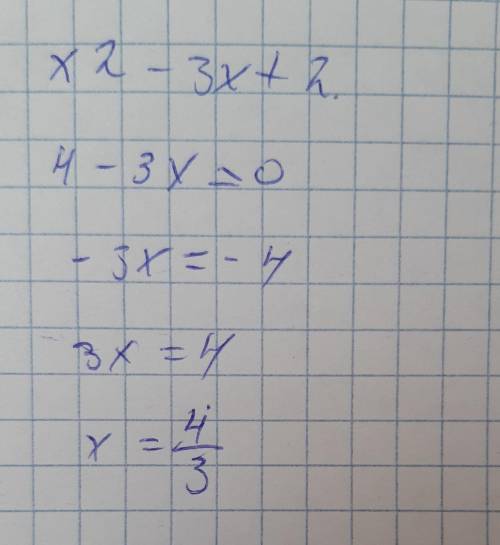 x2 - 3x + 2.
4 - 3x = 0
- 3x = - 4
3x = 4
x = 4/3